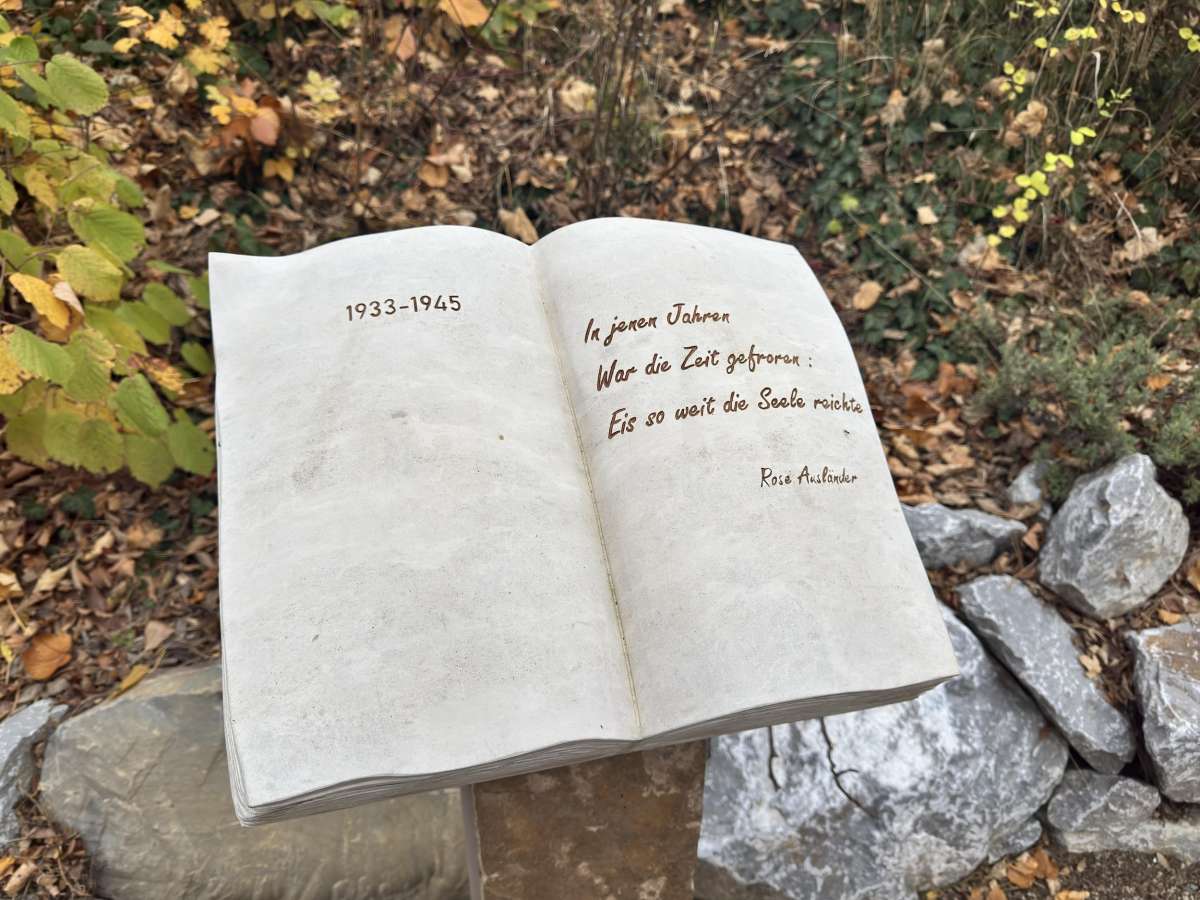 1933-1945
In jenen Jahren
War die Zeit gefroren :
Eis so weit die Seele reichte
Rose Ausländer